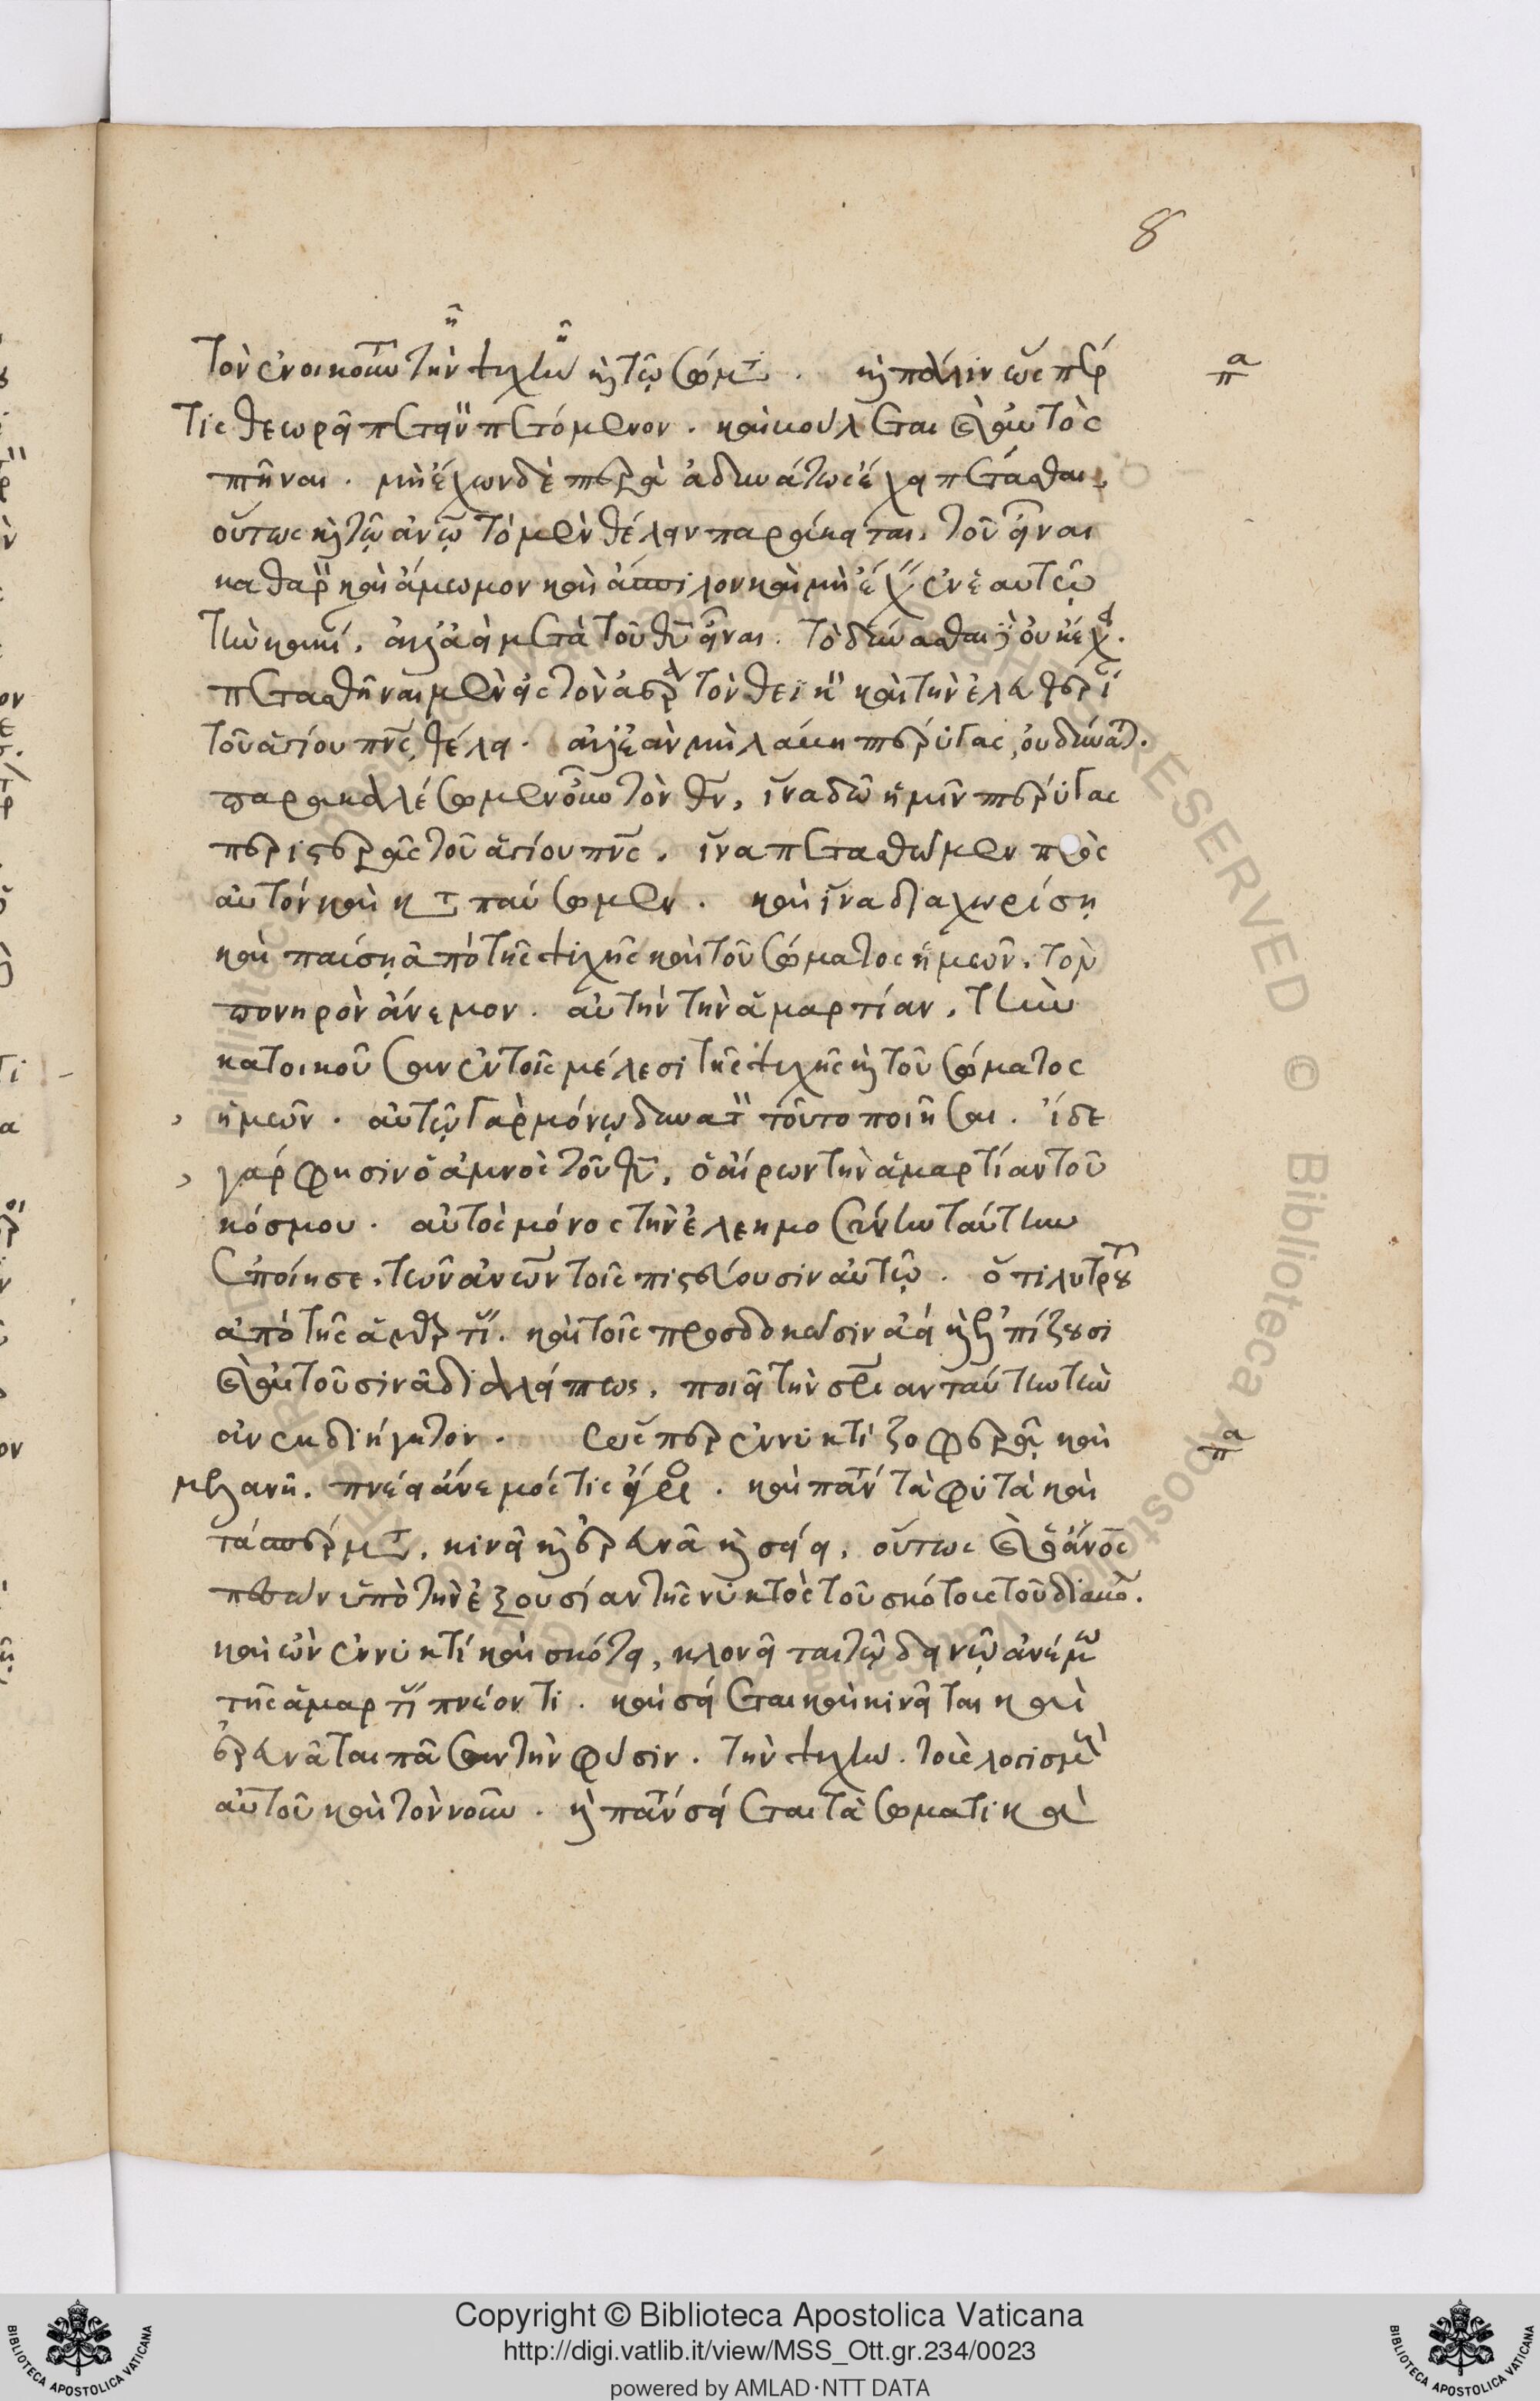 8
τὸν ἐνοικοῦντα τὴν ψυχὴν κ τῷ σώματι. κ πάλιν ὥσπερ
τις θεωρεῖ πετεινὸν πετόμενον. καὶ βούλεται καὶ αὐτὸς
πτῆναι. μὴ ἔχων δὲ πτερὰ ἀδυνάτως ἔχει πέτασθαι.
οὕτως κ τῷ ἀνω τὸ μὲν θέλειν παράκειται, τοῦ εἶναι
καθαρὸν καὶ ἄμωμον καὶ ἄσπιλον καὶ μὴ ἔχειν ἐν ἑαυτῷ
τὴν κακίαν, ἀλλ' ἀεὶ μετὰ τοῦ θυ εἶναι. τὸ δύνασθαι δὲ οὐκ ἔχει.
πετασθῆναι μὲν εἰς τὸν ἀέρα τὸν θεϊκὸν καὶ τὴν ἐλευθερίαν
τοῦ ἁγίου πνς θέλει. ἀλλ' ἐὰν μὴ λάβῃ πτέρυγας, οὐ δύναται.
παρακαλέσωμεν οὖν τὸν θν, ἵνα δῷ ἡμῖν πτέρυγας
περιστερᾶς τοῦ ἁγίου πνς, ἵνα πετασθῶμεν πρὸς
αὐτὸν καὶ καταπαύσωμεν. καὶ ἵνα διαχωρίσῃ
καὶ παύσῃ ἀπὸ τῆς ψυχῆς καὶ τοῦ σώματος ἡμῶν, τὸν
πονηρὸν ἄνεμον. αὐτὴν τὴν ἁμαρτίαν, τὴν
κατοικοῦσαν ἐν τοῖς μέλεσι τῆς ψυχῆς κ τοῦ σώματος
ἡμῶν. αὐτῷ γὰρ μόνῳ δυνατὸν τοῦτο ποιῆσαι. ἴδε
γάρ φησιν ὁ ἀμνὸς τοῦ θυ, ὁ αἴρων τὴν ἁμαρτίαν τοῦ
κόσμου. αὐτὸς μόνος τὴν ἐλεημοσύνην ταύτην
ἐποίησε, τῶν ἀνων τοῖς πιστεύουσιν αὐτῷ. ὅτι λυτροῦται
ἀπὸ τῆς ἁμαρτίας. καὶ τοῖς προσδοκῶσιν ἀεὶ κ ἐλπίζουσι
καὶ ζητοῦσιν ἀδιαλείπτως, ποιεῖ τὴν σριαν ταύτην τὴν
ἀνεκδιήγητον. ὥσπερ ἐν νυκτὶ ζοφερᾷ καὶ
μελανῇ, πνέει ἄνεμός τις ἄγριος. καὶ πάντα τὰ φυτὰ καὶ
τὰ σπέρματα, κινεῖ κ ἐρευνᾷ κ σείει, οὕτως καὶ ὁ ἄνος
πεσὼν ὑπὸ τὴν ἐξουσίαν τῆς νυκτὸς τοῦ σκότους τοῦ διαβόλου.
καὶ ὢν ἐν νυκτὶ καὶ σκότει, κλονεῖται τῷ δεινῷ ἀνέμῳ
τῆς ἁμαρτίας πνέοντι. καὶ σείεται καὶ κινεῖται καὶ
ἐρευνᾶται πᾶσαν τὴν φύσιν. τὴν ψυχὴν. τοὺς λογισμοὺς
αὐτοῦ καὶ τὸν νοῦν. κ πάντα σείεται τὰ σωματικὰ
Copyright © Biblioteca Apostolica Vaticana
http://digi.vatlib.it/view/MSS_Ott.gr.234/0023
powered by AMLAD·NTT DATA